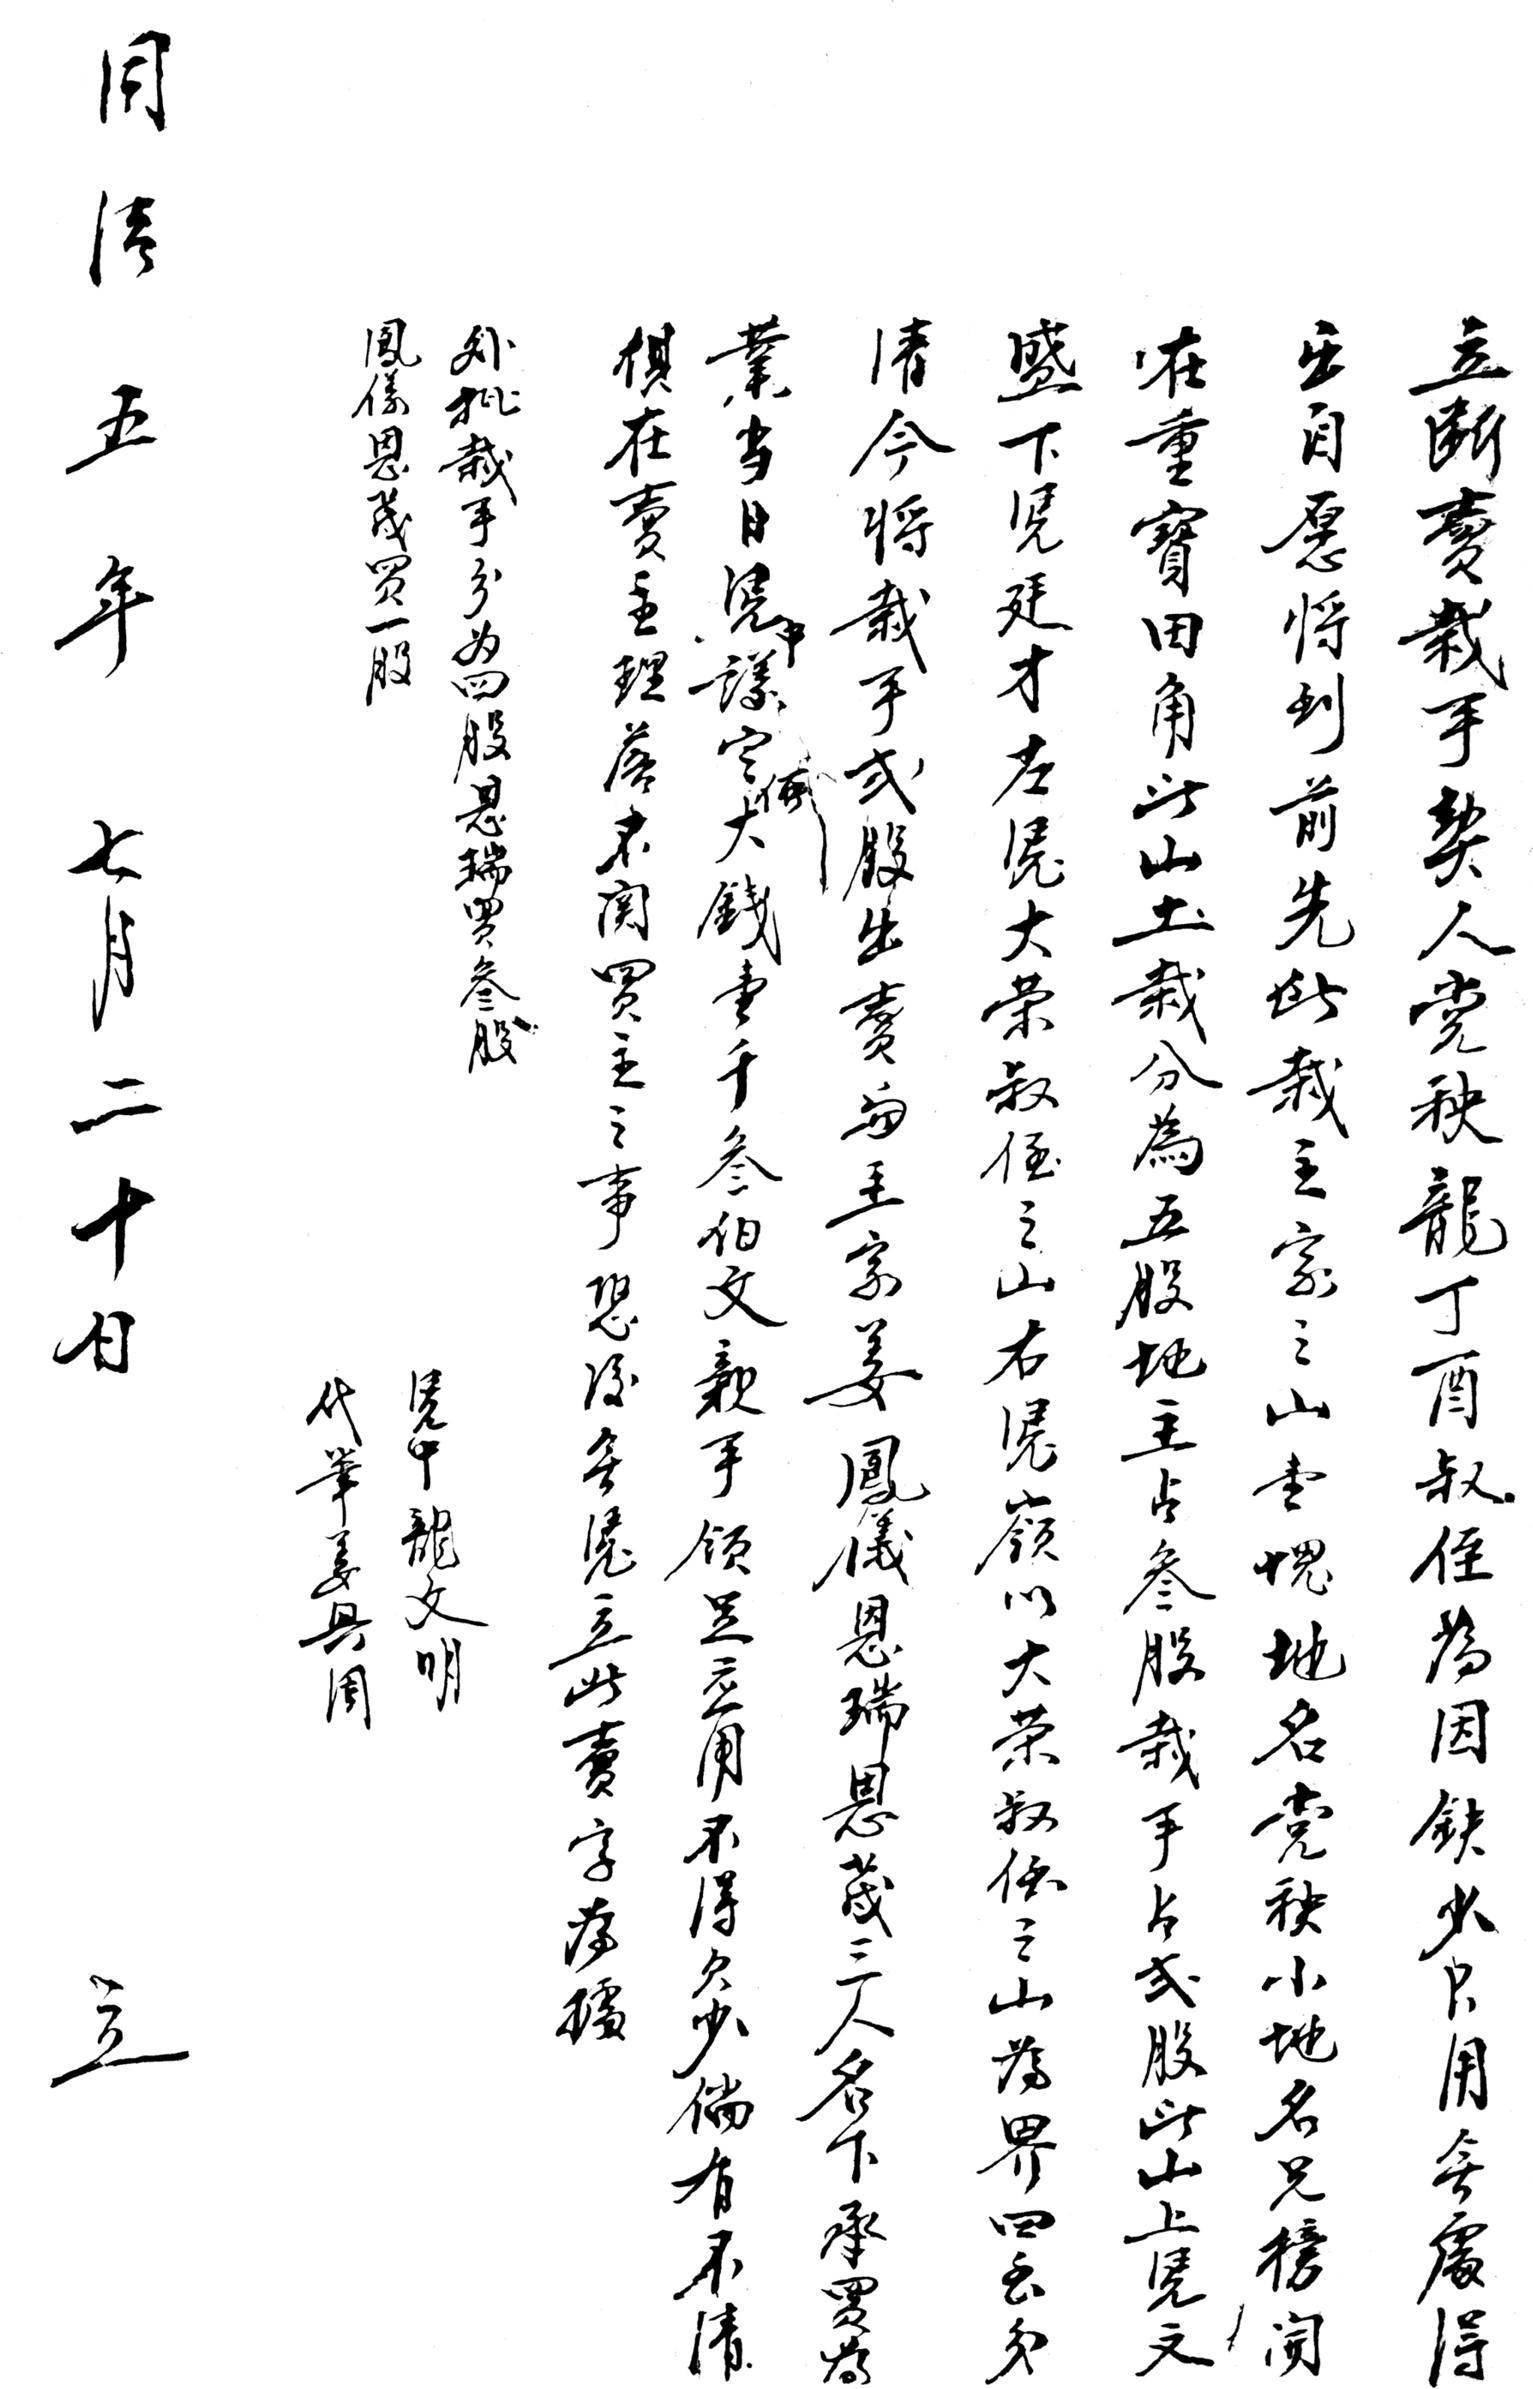 立斷賣栽手契人党秧龍丁酉叔侄為因缺少艮用無處得
出自愿將到前先此栽主家之山壹塊地名党秧小地名兄榜閒
在重寶田角此山土栽分為五股地主占叁股栽手占弍股此山上凴文
盛下凴廷才左凴大荣叔侄之山右凴嶺以大荣叔侄之山為界四至分
清今將栽手弍股出賣與主家姜鳳儀恩瑞恩茂三人名下承買為
業当日凴中議定價大錢壹千叁伯文親手領足应用不得欠少倘有不清
俱在賣主理落不関買主之事恐後無凴立此賣字為據
外批栽手分為四股恩瑞買叁股
鳳儀恩茂買一股
凴中龍文明
代筆姜興周
同治五年七月二十日 立